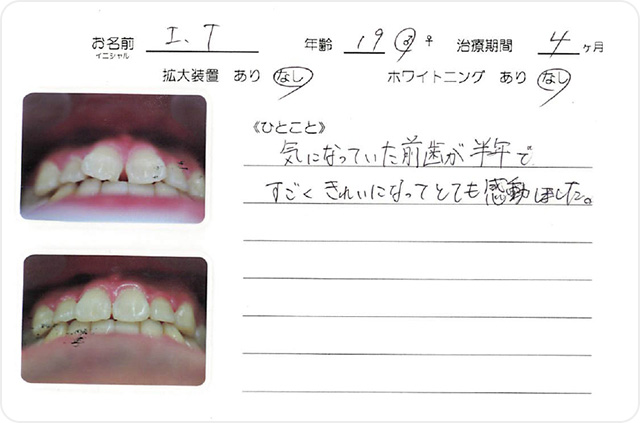 お名前 I. T 年齢 19 ♂ ♀ 治療期間 4 ヶ月
イニシャル
拡大装置 あり なし ホワイトニング あり なし
《ひとこと》
気になっていた前歯が半年で
すごくきれいになってとても感動しました。